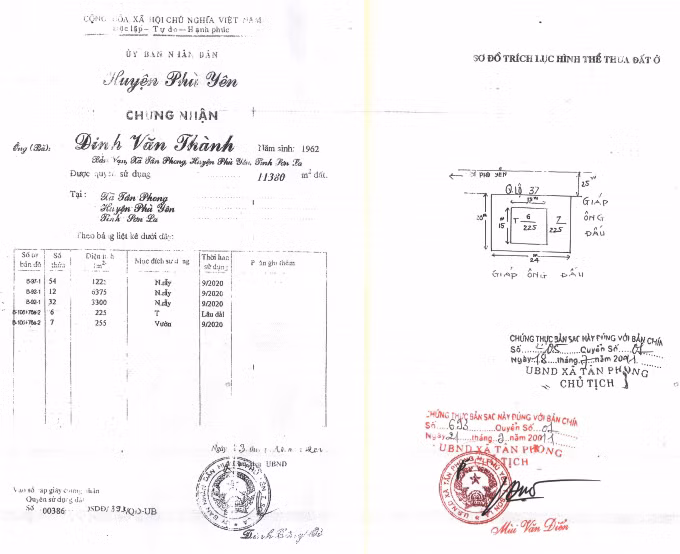 CỘNG HÒA XÃ HỘI CHỦ NGHĨA VIỆT NAM
Độc lập - Tự do - Hạnh phúc
ỦY BAN NHÂN DÂN
Huyện Phù Yên
CHỨNG NHẬN
Ông (Bà): Đinh Văn Thành Năm sinh: 1962
Bản Vạn, Xã Tân Phong, Huyện Phù Yên, Tỉnh Sơn La
Được quyền sử dụng 11380 m² đất.
Tại: Xã Tân Phong
Huyện Phù Yên
Tỉnh Sơn La
Theo bảng liệt kê dưới đây:
Số tờ bản đồ Số thửa Diện tích m² Mục đích sử dụng Thời hạn sử dụng Phần ghi thêm
54 N.rẫy 9/2020
12 6375 N.rẫy 9/2020
32 3300 N.rẫy 9/2020
6 225 T Lâu dài
7 255 Vườn 9/2020
UBND
Vào sổ cấp giấy chứng nhận
Quyền sử dụng đất
Số 00386 QSDĐ/ 393/QĐ-UB
SƠ ĐỒ TRÍCH LỤC HÌNH THỂ THỬA ĐẤT Ở
ĐI PHÙ YÊN
QLộ 37
25m
15m
20m
15
T 6/225
7/225
24
GIÁP ÔNG ĐẤU
GIÁP ÔNG ĐẤU
CHỨNG THỰC BẢN SAO NÀY ĐÚNG VỚI BẢN CHÍNH
Số 405 Quyển Số 01
Ngày 18 tháng 2 năm 2001
UBND XÃ TÂN PHONG
CHỦ TỊCH
CHỨNG THỰC BẢN SAO NÀY ĐÚNG VỚI BẢN CHÍNH
Số 693 Quyển Số 01
Ngày 21 tháng 2 năm
UBND XÃ TÂN PHONG
TỊCH
Mùi Văn Diễn